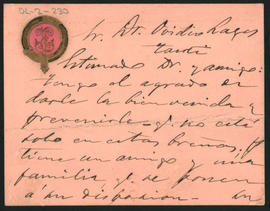 DL-2-230
Sr. Dr. Ovidio Lagos
Estimado Dr. y amigo:
Tengo el agrado de
darle la bienvenida y
prevenirle q. no está
solo en estas breñas. q.
tiene un amigo y una
familia q. se ponen
á su disposicion.